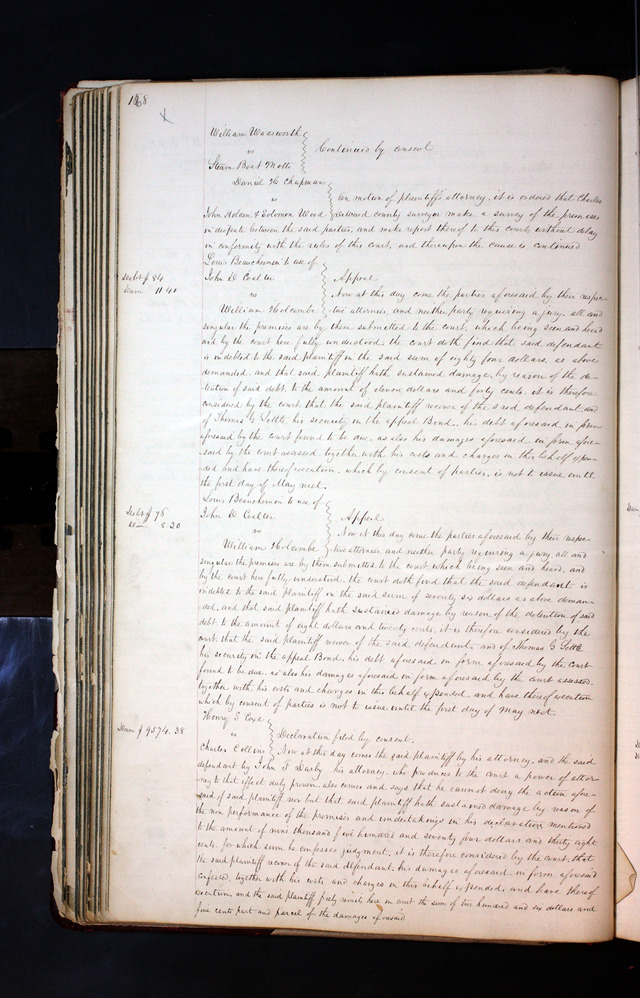 168
William Wadsworth
vs
Steam Boat Motto
Continued by consent
Daniel H Chapman
vs
John Holden & Solomon Wood
On motion of plaintiffs attorney, it is ordered that Charles
county surveyor make a survey of the premises
in dispute between the said parties, and make report thereof to this court, without delay
in conformity with the rules of this court, and thereupon the cause is continued
Louis Beauchemin to use of
John D Coalter
vs
William Holcombe
Debt $ 84
Dam 11.40
Appeal
Now at this day come the parties aforesaid by their respec-
tive attornies, and neither party requiring a jury, all and
singular the premises are by them submitted to the court, which being seen and heard
and by the court here fully understood, the court doth find that said defendant
is indebted to the said plaintiff in the said sum of eighty four dollars, as above
demanded, and that said plaintiff hath sustained damage by reason of the de-
tention of said debt, to the amount of eleven dollars and forty cents, it is therefore
considered by the court, that the said plaintiff recover of the said defendant, and
of Thomas G Settle his security in the appeal Bond, his debt aforesaid in form
aforesaid by the court found to be due, as also his damages aforesaid in form afore-
said by the court assessed together with his costs and charges in this behalf expen-
ded and have thereof execution, which by consent of parties, is not to issue until
the first day of May next.
Louis Beauchemin to use of
John D Coalter
vs
William Holcombe
Debt $ 76
Dam 8.20
Appeal
Now at this day come the parties aforesaid by their respec-
tive attornies, and neither party requiring a jury all and
singular the premises are by them submitted to the court, which being seen and heard, and
by the court here fully understood, the court doth find that the said defendant is
indebted to the said plaintiff in the said sum of seventy six dollars as above deman-
ded, and that said plaintiff hath sustained damage by reason of the detention of said
debt to the amount of eight dollars and twenty cents, it is therefore considered by the
court, that the said plaintiff recover of the said defendant, and of Thomas G Settle
his security in the appeal Bond, his debt aforesaid in form aforesaid by the court
found to be due, as also his damages aforesaid in form aforesaid by the court assessed,
together with his costs and charges in this behalf expended, and have thereof execution
which by consent of parties is not to issue until the first day of May next.
Henry S Coxe
vs
Charles Collins
Dam $ 9574.38
Declaration filed by consent.
Now at this day comes the said plaintiff by his attorney, and the said
defendant by John F Darby his attorney, who produces to the court a power of attor-
ney to that effect duly proven, also comes and says that he cannot deny the action afore-
said of said plaintiff nor but that said plaintiff hath sustained damage by reason of
the non performance of the promises and undertakings in his declaration mentioned
to the amount of nine thousand five hundred and seventy four dollars and thirty eight
cents, for which sum he confesses judgment, it is therefore considered by the court, that
the said plaintiff recover of the said defendant, his damages aforesaid in form aforesaid
confessed, together with his costs and charges in this behalf expended, and have thereof
execution, and the said plaintiff freely remits here in court the sum of two hundred and six dollars and
five cents part and parcel of the damages aforesaid